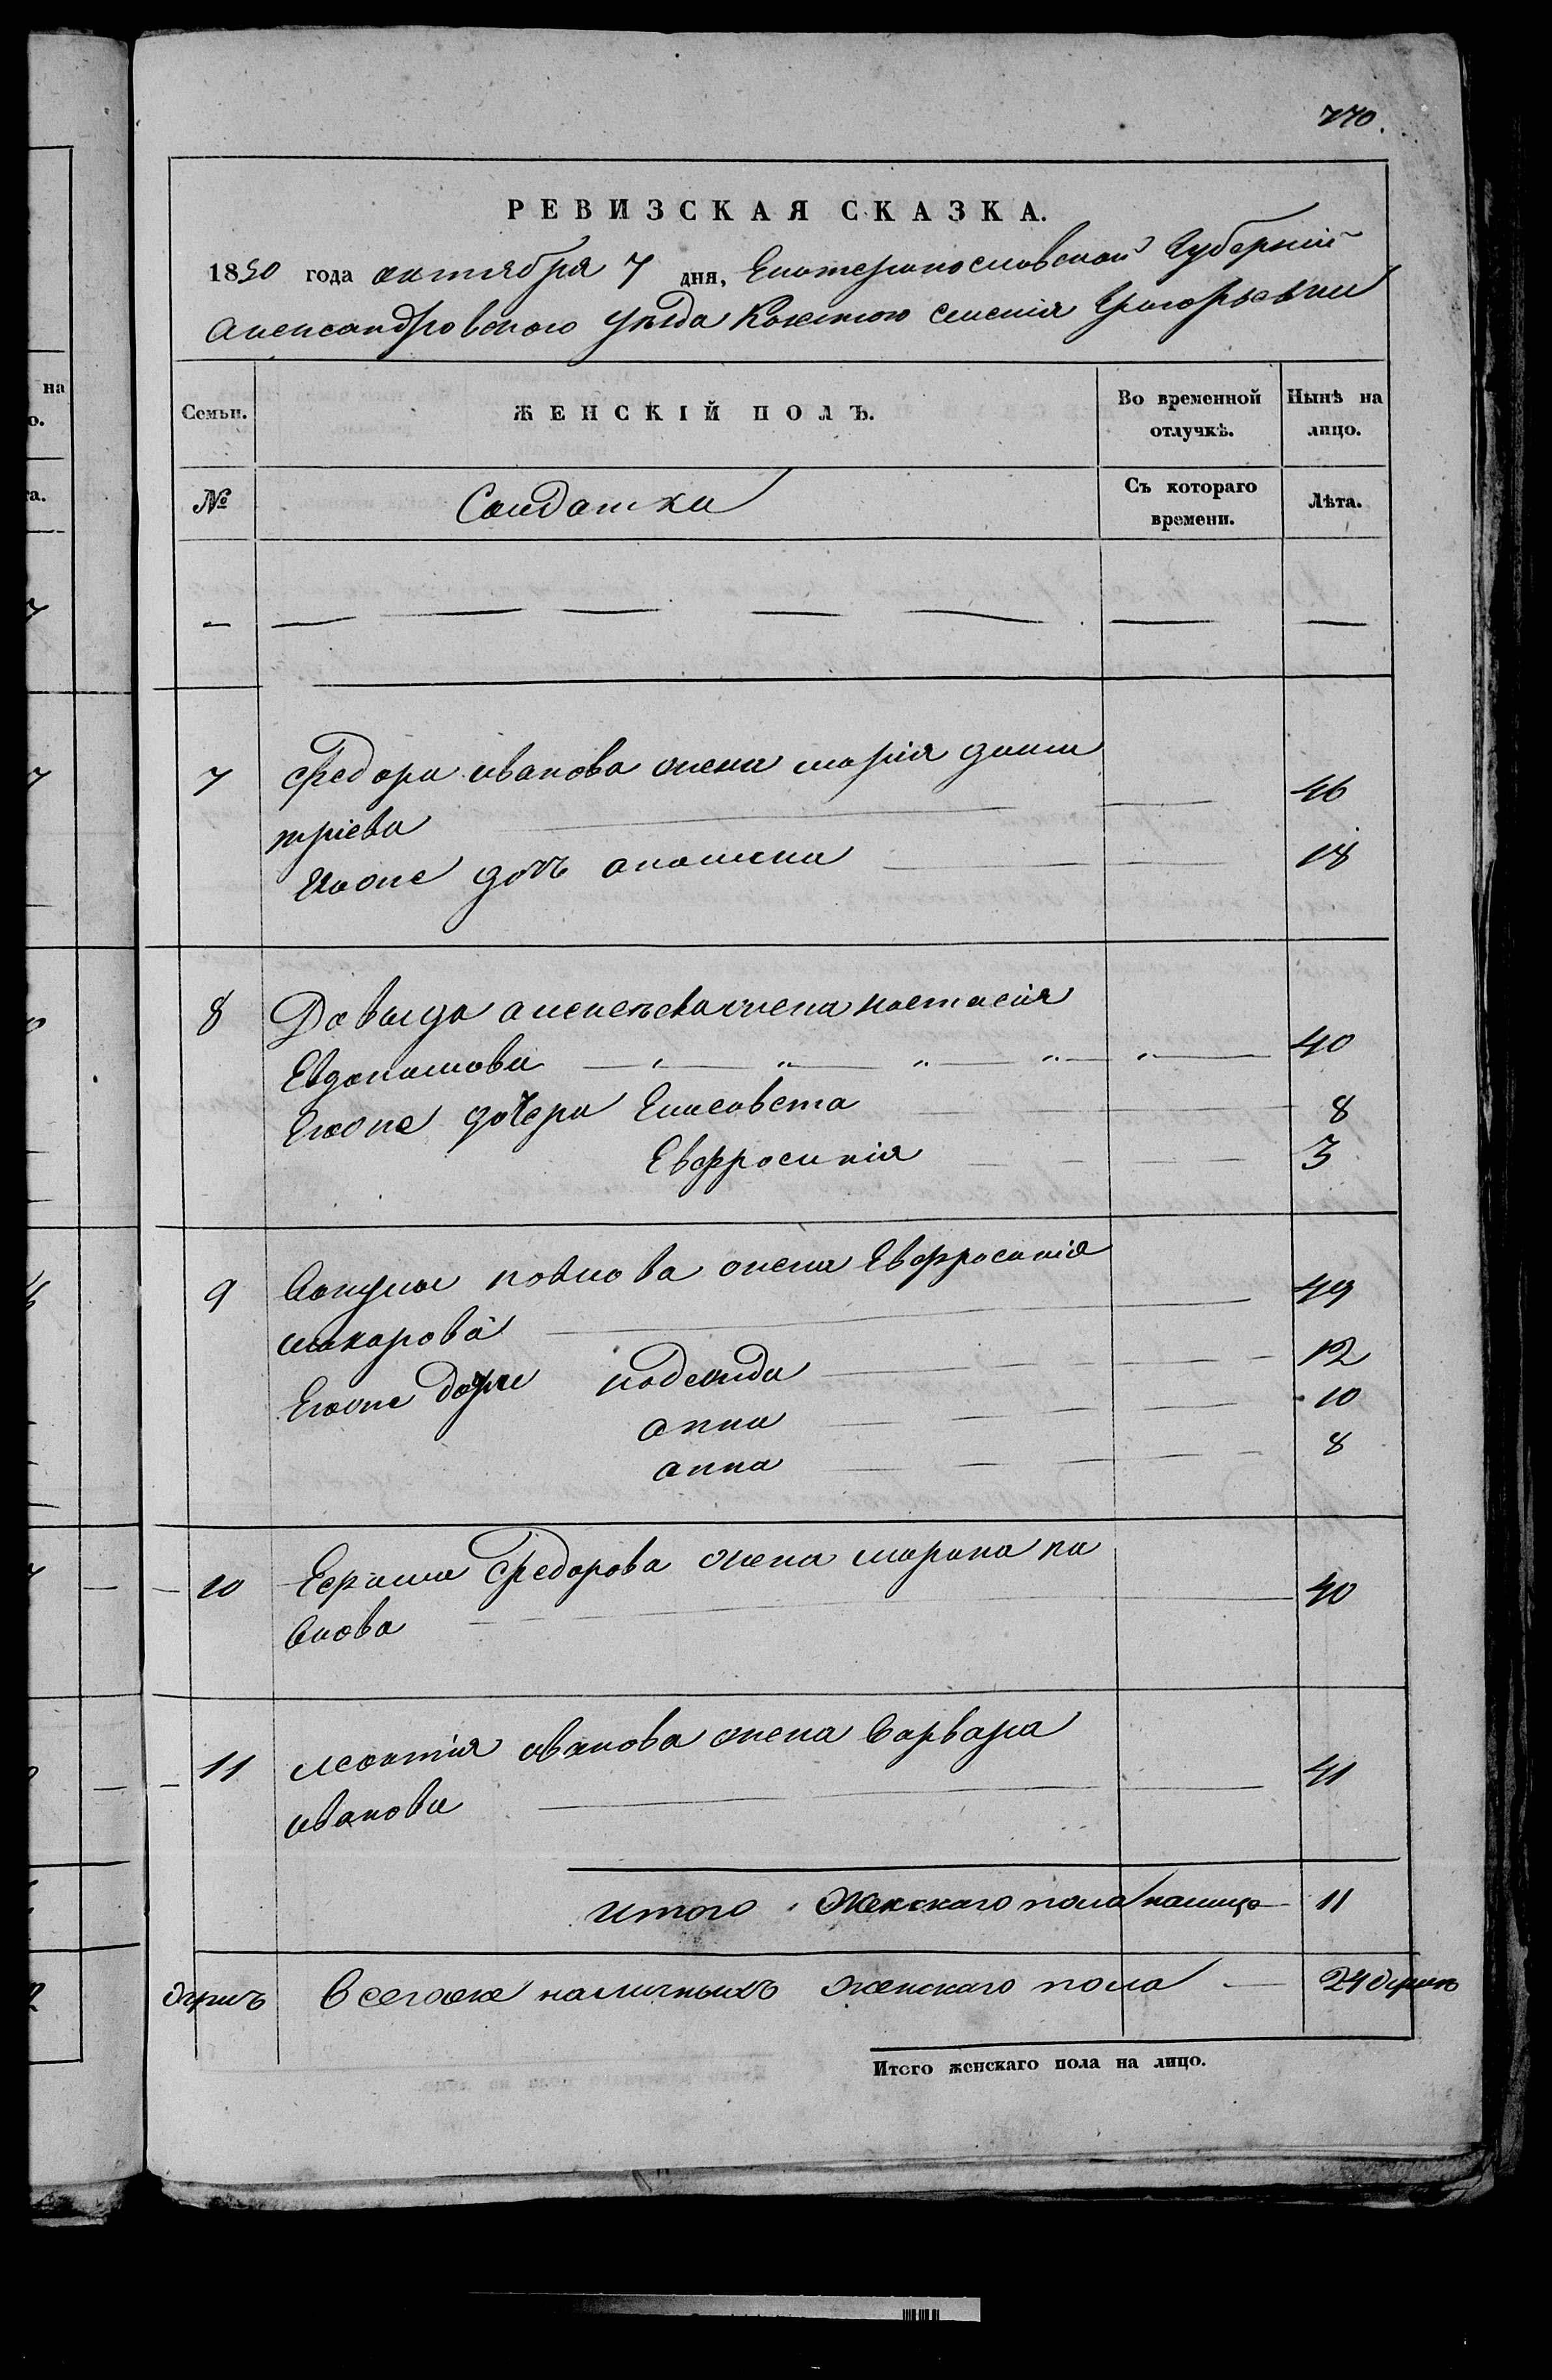 770.
РЕВИЗСКАЯ СКАЗКА.
1850 года октября 7 дня, Екатеринославской Губерніи
Александровского уѣзда Казенного селенія Григорьевки
Семьи. ЖЕНСКІЙ ПОЛЪ. Во временной отлучкѣ. Нынѣ на лицо.
№ Солдатки Съ котораго времени. Лѣта.
7 Федора иванова жена марія дмит
тріева 46
Егоже дочь 18
8 Давыда алексѣева жена настасия
Евдокимова 40
Егоже дочери Елисавета 8
Евфросинія 3
9 жена Евфросинія
макарова 49
Егоже дочери надежда 12
анна 10
анна 8
10 Федорова жена марина па
влова 40
11 леонтія иванова жена варвара
иванова 41
итого женскаго пола налицо 11
Всегоже наличныхъ женскаго пола 24 души
Итого женскаго пола на лицо.
на
о.
та.